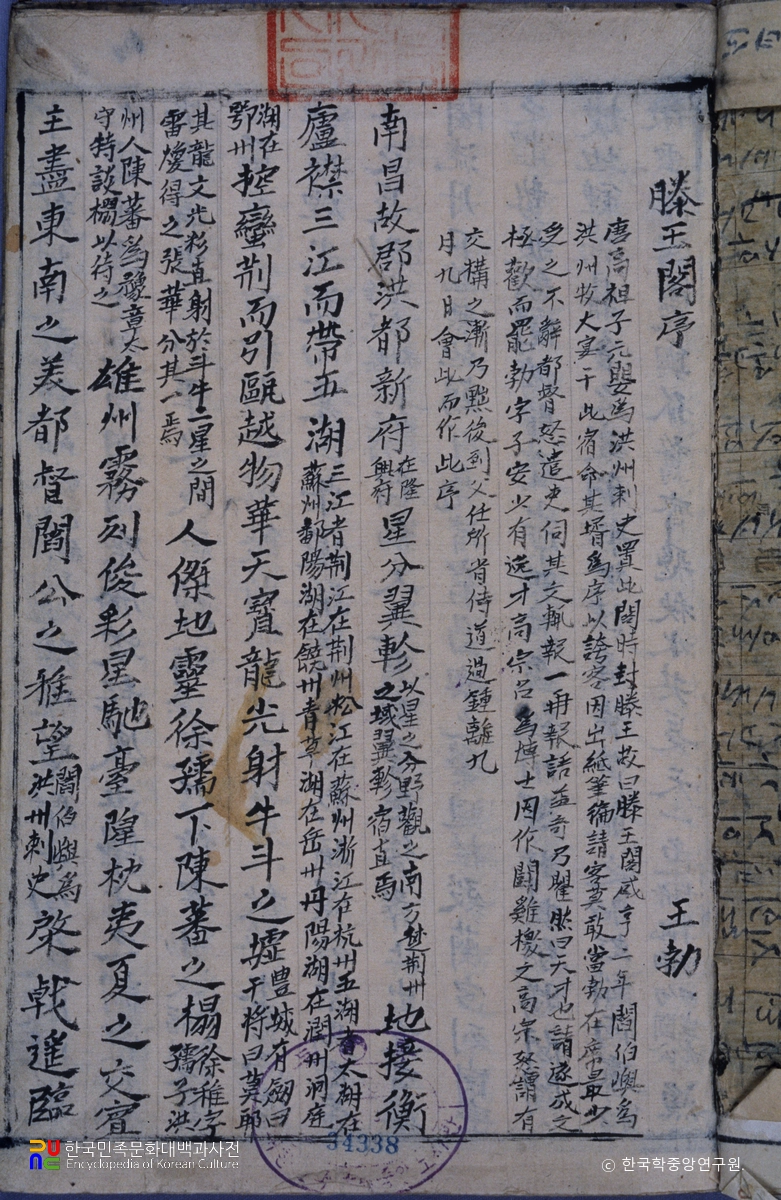 滕王閣序　王勃
唐高祖子元嬰爲洪州刺史置此閣時封滕王故曰滕王閣咸亨二年閻伯嶼爲
洪州牧大宴于此宿命其壻爲序以誇客因出紙筆徧請客莫敢當勃在席最少
受之不辭都督怒遣吏伺其文輒報一再報語益奇乃矍然曰天才也請遂成文
極歡而罷勃字子安少有逸才高宗召爲博士因作鬪雞檄文高宗怒謂有
交構之漸乃黜後到父任所省侍道過鍾離九
月九日會此而作此序
南昌故郡洪都新府在隆興府星分翼軫以星之分野觀之南方楚荊州之域翼軫宿直焉地接衡
廬襟三江而帶五湖三江者荊江在荊州松江在蘇州浙江在杭州五湖者太湖在蘇州鄱陽湖在饒州青草湖在岳州丹陽湖在潤州洞庭
湖在鄂州控蠻荊而引甌越物華天寶龍光射牛斗之墟豊城有劒曰干將曰莫耶
其龍文光彩直射於斗牛二星之間雷煥得之張華分其一焉人傑地靈徐孺下陳蕃之榻徐稚字孺子洪
州人陳蕃爲豫章太守特設榻以待之雄州霧列俊彩星馳臺隍枕夷夏之交賓
主盡東南之美都督閻公之雅望閻伯嶼爲洪州刺史棨戟遙臨
34338
한국민족문화대백과사전
Encyclopedia of Korean Culture
© 한국학중앙연구원.